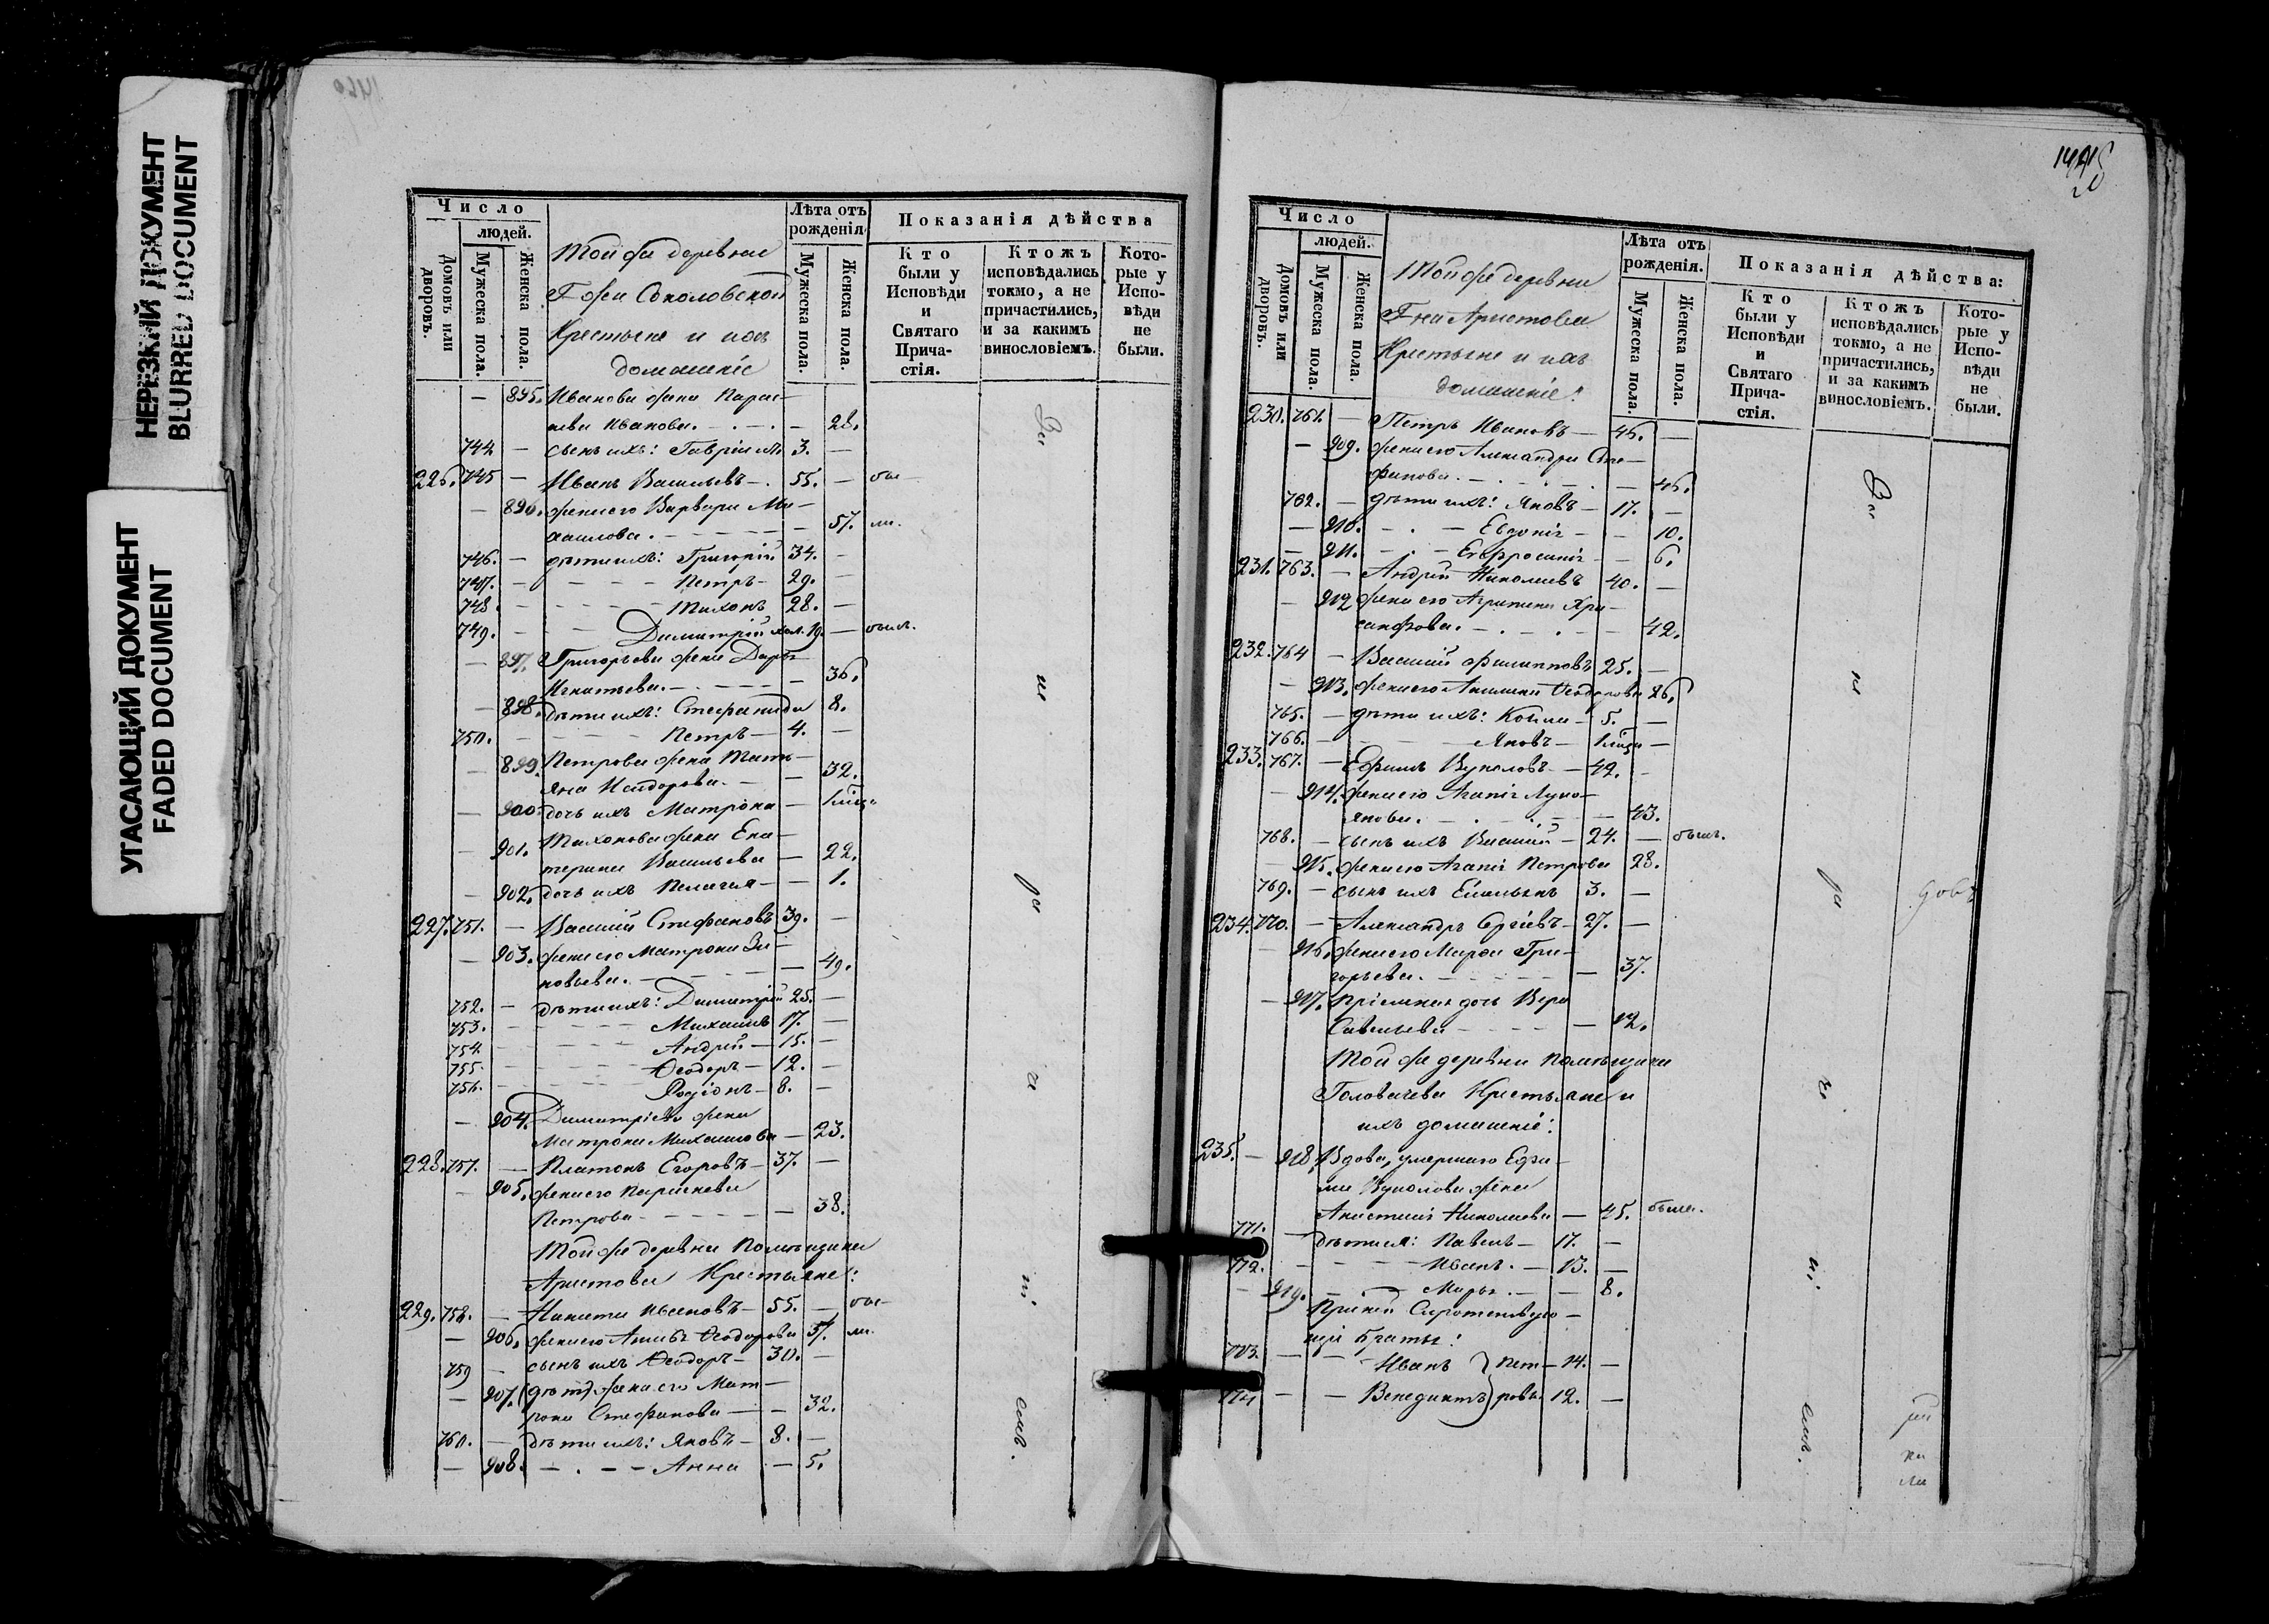 НЕРЕЗКИЙ ДОКУМЕНТ
BLURRED DOCUMENT
УГАСАЮЩИЙ ДОКУМЕНТ
FADED DOCUMENT
Число
людей.
Домовъ или дворовъ.
Мужеска пола.
Женска пола.
Той же деревни
Г-жи Соколовской
Крестьяне и ихъ
домашніе
Лѣта отъ рожденія
Мужеска пола.
Женска пола.
Показанія дѣйства
Кто были у Исповѣди и Святаго Причастія.
Ктожъ исповѣдались токмо, а не причастились, и за какимъ винословіемъ.
Которые у Исповѣди не были.
— 895. Иванова жена Парас-
кева Иванова. — 28.
744 — сынъ ихъ: Гавріилъ 3. —
226. 745 — Иванъ Васильевъ — 55. — бы-
— 896. жена его Варвара Ми-
хаилова. — 57. ли.
746. — дѣти ихъ: Григорій 34. —
747. — Петръ — 29. —
748. — Тихонъ 28. —
749. — Димитрій хол. 19. — былъ.
— 897. Григорьева жена Дарья
Игнатьева. — 36.
— 898. дѣти ихъ: Стефанида 8.
750. — Петръ — 4. —
— 899. Петрова жена Тать-
яна Исидорова. — 32.
— 900. дочь ихъ Матрона —
— 901. Тихонова жена Ека-
терина Васильева — 22.
— 902. дочь ихъ Пелагея — 1.
227. 751. — Василій Стефановъ 39. —
— 903. жена его Матрона Зи-
новьева. — 49.
752. — дѣти ихъ: Димитрій 25. —
753. — Михаилъ 17. —
754. — Андрей — 15. —
755. — Ѳеодоръ — 12. —
756. — Родіонъ — 8. —
— 904. Димитріева жена
Матрона Михаилова — 23.
228. 757. — Платонъ Егоровъ — 37. —
— 905. жена его Параскева
Петрова — 38.
Той же деревни Помѣщика
Аристова Крестьяне:
229. 758. — Никита Ивановъ — 55. — бы-
— 906. жена его Ѳеодорова 57. ли.
759 — сынъ ихъ Ѳеодоръ — 30. —
— 907. жена его Мат-
рона Стефанова — 32.
760. — дѣти ихъ: Яковъ — 8. —
— 908. — Анна — 5.
За
не
ра
че
ні
емъ.
Число
людей.
Домовъ или дворовъ.
Мужеска пола.
Женска пола.
Той же деревни
Г-на Аристова
Крестьяне и ихъ
домашніе:
Лѣта отъ рожденія.
Мужеска пола.
Женска пола.
Показанія дѣйства:
Кто были у Исповѣди и Святаго Причастія.
Ктожъ исповѣдались токмо, а не причастились, и за какимъ винословіемъ.
Которые у Исповѣди не были.
230. 761. — Петръ Ивановъ — 45. —
— 909. жена его Александра Сте-
фанова. — 46.
762. — дѣти ихъ: Яковъ — 17. —
— 910. — Евдокія — 10.
— 911. — Евфросинія — 6.
231. 763. — Андрей Николаевъ 40. —
— 912 жена его Агрипина Хри-
санфова. — 42.
232. 764 — Василій Филипповъ 25. —
— 913. жена его Акилина Ѳеодорова 26.
765. — дѣти ихъ: Козма — 5. —
766. — Яковъ —
233. 767. — Ефимъ Вуколовъ — 42. —
— 914. жена его Агапія Лукo-
янова. — 43.
768. — сынъ ихъ Василій — 24. — былъ.
— 915. жена его Агапія Петрова 28.
769. — сынъ ихъ Емельянъ 3. —
234. 770. — Александръ Сергіевъ — 27. —
— 916. жена его Марфа Гри-
горьева. — 37.
— 917. Пріемная дочь Вера
Савельева — 12.
Той же деревни Помѣщика
Головачева Крестьяне и
ихъ домашніе:
235. — 918. Вдова, умершаго Ефи-
ма Вуколова жена
Анастасія Николаева — 45. была.
771. — дѣти ея: Павелъ — 17. —
772. — Иванъ. — 13. —
— 919. — Марья. — 8.
При ней Сиротствую-
щіе братья:
773. — Иванъ } Пет- 14. —
774 — Венедиктъ } ровы 12. —
За
не
ра
че
ні
емъ.